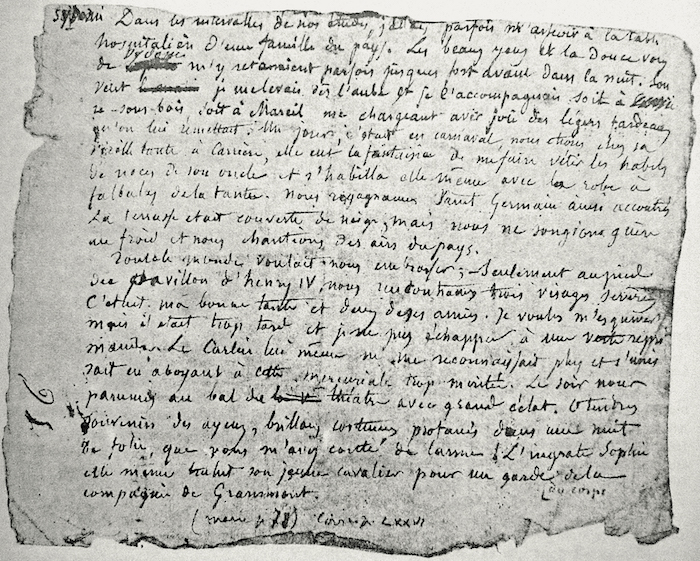 Sydonie Dans les intervalles de nos études j'allais parfois m'asseoir à la table
hospitalière d'une famille du pays. Les beaux yeux et la douce voix
de Sydonie m'y retenaient parfois jusques fort avant dans la nuit. Sou
vent je me levais dès l'aube et je l'accompagnais soit à
re-sous-bois, soit à Mareil me chargeant avec joie des légers fardeaux
qu'on lui remettait. Un jour, c'était en carnaval, nous étions chez sa
vieille tante à Carrière, elle eut la fantaisie de me faire vêtir les habits
de noces de son oncle et s'habilla elle même avec la robe à
falbalas de la tante. Nous regagnames Saint Germain ainsi accoutrés
La terrasse était couverte de neige, mais nous ne songions guère
au froid et nous chantions des airs du pays.
Tout le monde voulait nous embrasser ; - Seulement au pied
du pavillon d'henry IV, nous rencontrames trois visages sévères
C'était ma bonne tante et deux de ses amies. Je voulus m'esquiver
mais il était trop tard et je ne pus échapper à une verte répri
mande. Le Carlin lui même ne me reconnaissait plus et s'unis
sait en aboyant à cette mercuriale trop méritée. Le soir nous
parumes au bal du théatre avec grand éclat. O tendres
souvenirs des ayeux, brillans costumes profanés dans une nuit
de folie, que vous m'avez couté de larmes ! L'ingrate Sophie
elle même trahit son jeune cavalier pour un garde du corps de la
compagnie de Grammont.